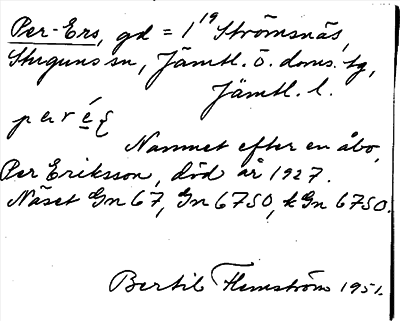 Per-Ers, gd = 1¹⁹ Strömsnäs,
Stuguns sn, Jämtl. ö. doms. tg,
Jämtl. l.
Namnet efter en åbo,
Per Eriksson, död år 1927.
Näset Gn 67, Gn 67SO, k Gn 67SO.
Bertil Flemström 1951.